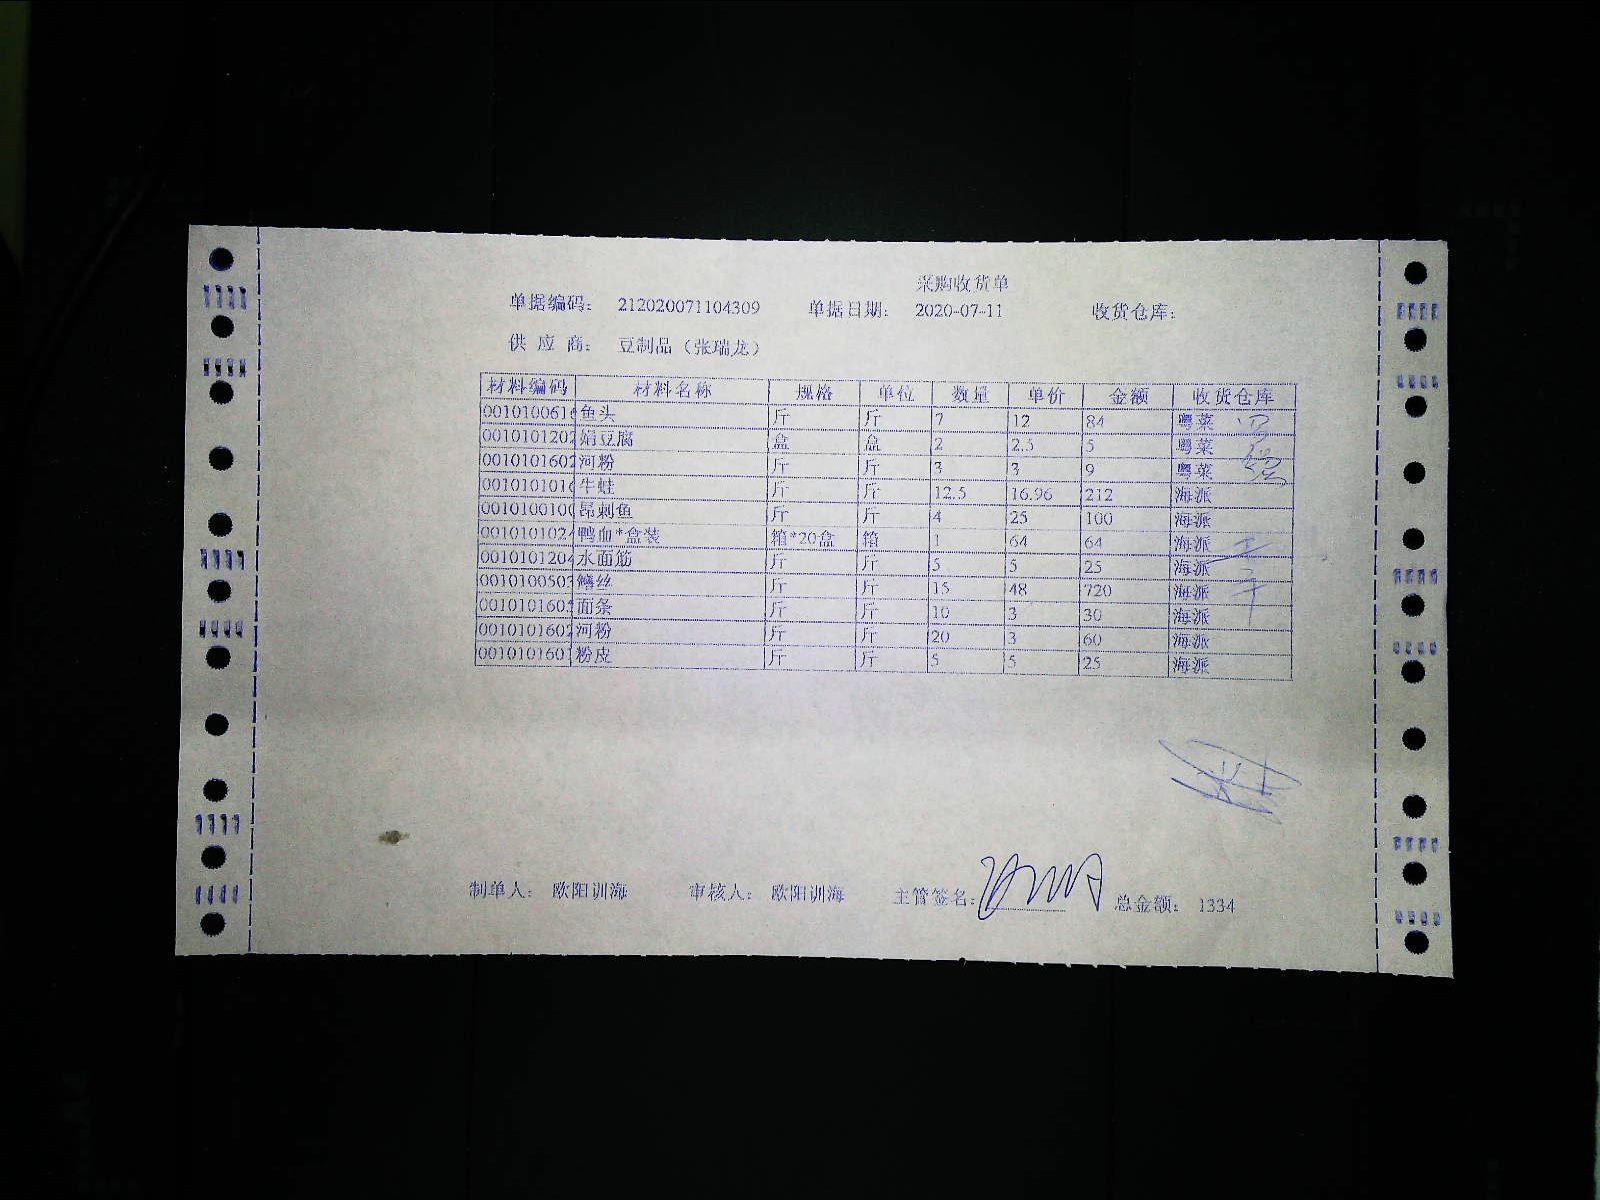 采购收货单
单据编码： 212020071104309 单据日期： 2020-07-11 收货仓库：
供 应 商： 豆制品（张瑞龙）
材料编码 材料名称 规格 单位 数量 单价 金额 收货仓库
001010061 鱼头 斤 斤 7 12 84 粤菜
001010120 娟豆腐 盒 盒 2 2.5 5 粤菜
001010160 河粉 斤 斤 3 3 9 粤菜
001010101 牛蛙 斤 斤 12.5 16.96 212 海派
001010010 昂刺鱼 斤 斤 4 25 100 海派
001010102 鸭血*盒装 箱*20盒 箱 1 64 64 海派
001010120 水面筋 斤 斤 5 5 25 海派
001010050 鳝丝 斤 斤 15 48 720 海派
001010160 面条 斤 斤 10 3 30 海派
001010160 河粉 斤 斤 20 3 60 海派
001010160 粉皮 斤 斤 5 5 25 海派
制单人： 欧阳训海 审核人： 欧阳训海 主管签名： 总金额： 1334